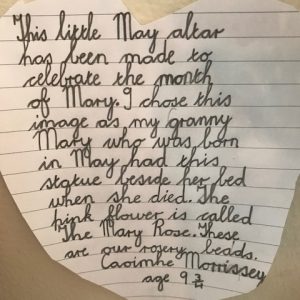 This little May altar
has been made to
celebrate the month
of Mary. I chose this
image as my granny
Mary who was born
in May had this
statue beside her bed
when she died. The
pink flower is called
The Mary Rose. These
are our rosery beads.
Caoimhe Morrissey
age 9 3/4